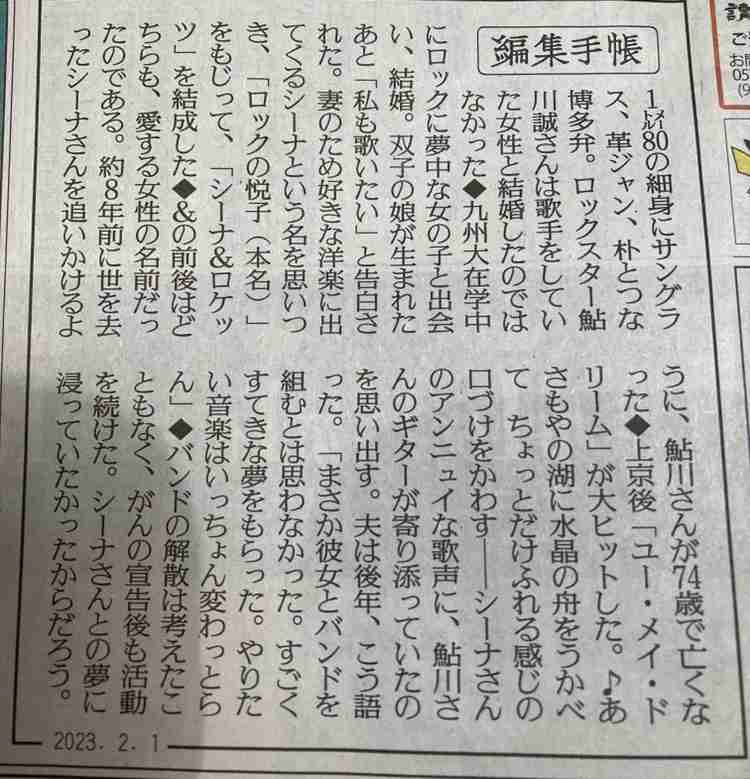 編集手帳
1㍍80の細身にサングラ
ス、革ジャン、朴とつな
博多弁。ロックスター鮎
川誠さんは歌手をしてい
た女性と結婚したのでは
なかった◆九州大在学中
にロックに夢中な女の子と出会
い、結婚。双子の娘が生まれた
あと「私も歌いたい」と告白さ
れた。妻のため好きな洋楽に出
てくるシーナという名を思いつ
き、「ロックの悦子（本名）」
をもじって、「シーナ＆ロケッ
ツ」を結成した◆＆の前後はど
ちらも、愛する女性の名前だっ
たのである。約8年前に世を去
ったシーナさんを追いかけるよ
うに、鮎川さんが74歳で亡くな
った◆上京後「ユー・メイ・ド
リーム」が大ヒットした。♪あ
さもやの湖に水晶の舟をうかべ
て　ちょっとだけふれる感じの
口づけをかわす――シーナさん
のアンニュイな歌声に、鮎川さ
んのギターが寄り添っていたの
を思い出す。夫は後年、こう語
った。「まさか彼女とバンドを
組むとは思わなかった。すごく
すてきな夢をもらった。やりた
い音楽はいっちょん変わっとら
ん」◆バンドの解散は考えたこ
ともなく、がんの宣告後も活動
を続けた。シーナさんとの夢に
浸っていたかったからだろう。
2023. 2. 1
ご
お問
05
(9